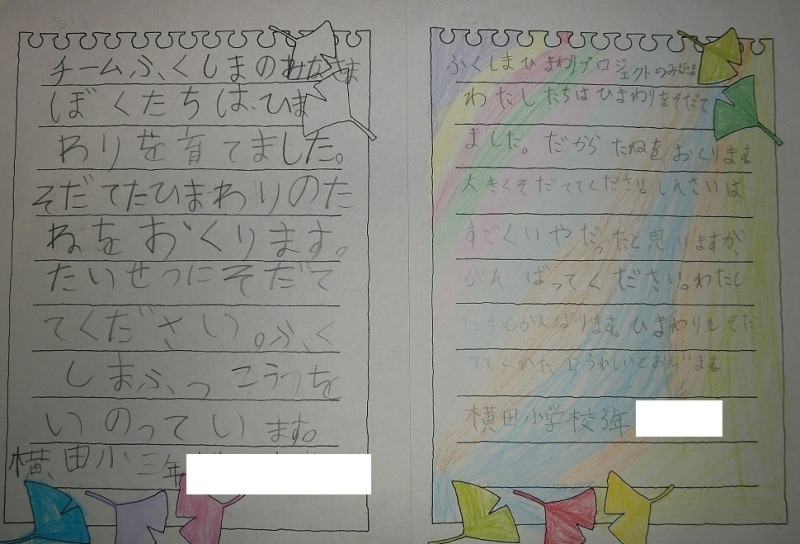 チームふくしまのみなさま
ぼくたちは、ひま
わりを育てました。
そだてたひまわりのた
ねをおくります。
たいせつにそだて
てください。ふく
しまふっこうつを
いのっています。
横田小三年
ふくしまひまわりプロジェクトのみなさま
わたしたちはひまわりをそだて
ました。だから たねを おくります
大きくそだててください。しんさいは
すごくいやだったと思いますが、
がんばってください。わたし
たちもがんばります。ひまわりもそだ
ててくれたらうれしいとおもいます
横田小学校3年